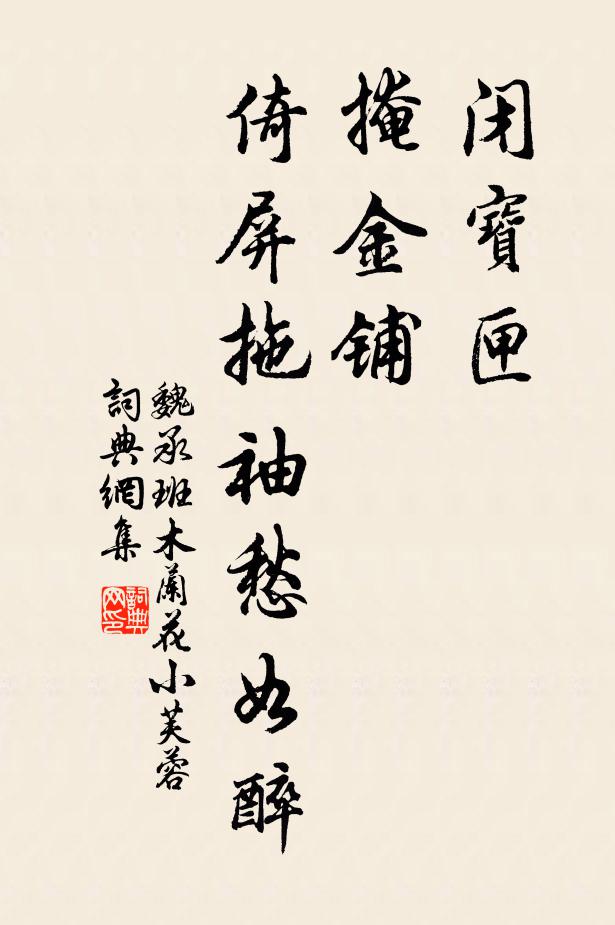 闭寶匣
掩金铺
倚屏拖袖愁如醉
魏承班木蘭花小芙蓉
詞典網集
詞典网印